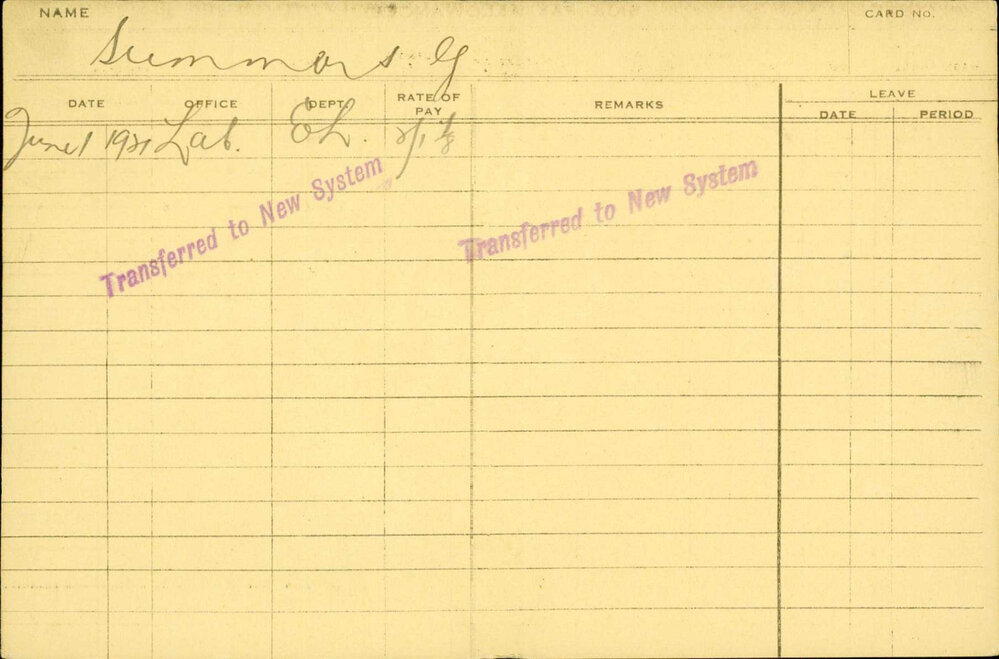 NAME
CARD NO.
Summons. G.
DATE OFFICE DEPT. RATE OF PAY REMARKS LEAVE
DATE PERIOD
June 1 1921 Lab. EL.
Transferred to New System
Transferred to New System